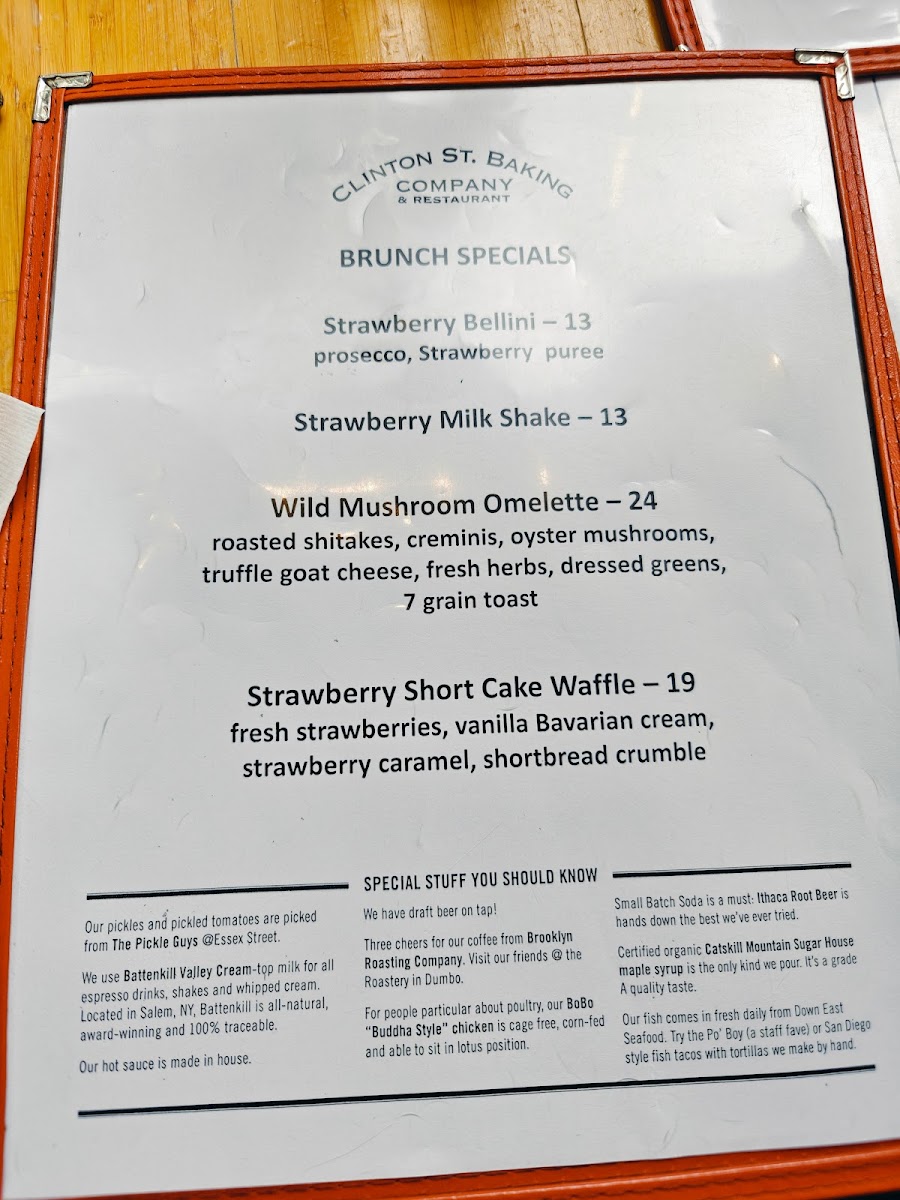 CLINTON ST. BAKING
COMPANY
& RESTAURANT
BRUNCH SPECIALS
Strawberry Bellini – 13
prosecco, Strawberry puree
Strawberry Milk Shake – 13
Wild Mushroom Omelette – 24
roasted shitakes, creminis, oyster mushrooms,
truffle goat cheese, fresh herbs, dressed greens,
7 grain toast
Strawberry Short Cake Waffle – 19
fresh strawberries, vanilla Bavarian cream,
strawberry caramel, shortbread crumble
SPECIAL STUFF YOU SHOULD KNOW
Our pickles and pickled tomatoes are picked
from The Pickle Guys @Essex Street.
We use Battenkill Valley Cream-top milk for all
espresso drinks, shakes and whipped cream.
Located in Salem, NY, Battenkill is all-natural,
award-winning and 100% traceable.
Our hot sauce is made in house.
We have draft beer on tap!
Three cheers for our coffee from Brooklyn
Roasting Company. Visit our friends @ the
Roastery in Dumbo.
For people particular about poultry, our BoBo
“Buddha Style” chicken is cage free, corn-fed
and able to sit in lotus position.
Small Batch Soda is a must: Ithaca Root Beer is
hands down the best we've ever tried.
Certified organic Catskill Mountain Sugar House
maple syrup is the only kind we pour. It's a grade
A quality taste.
Our fish comes in fresh daily from Down East
Seafood. Try the Po' Boy (a staff fave) or San Diego
style fish tacos with tortillas we make by hand.